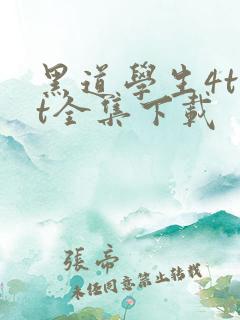 黑道學生4t
t全集下載
張帝
未经同意禁止转载